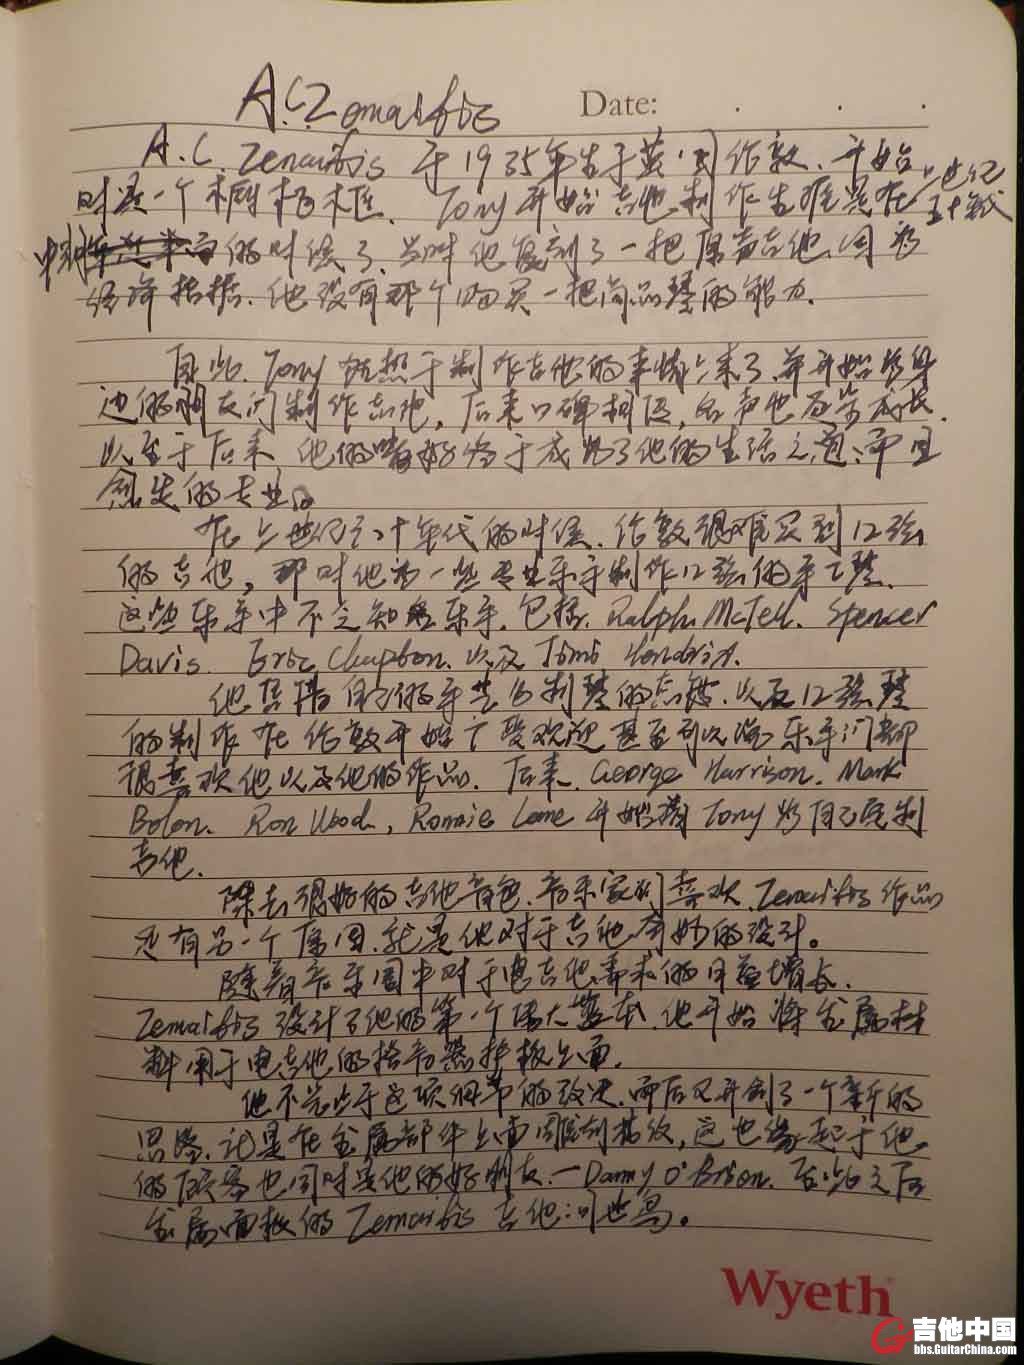 A.C.Zemaitis
Date:
A.C. Zemaitis 于1935年生于英国伦敦.开始
时是一个橱柜木匠. Tony开始吉他制作生涯是在上世纪五十年代
中期的时候了.当时他复刻了一把原声吉他.因为
经济拮据.他没有那个购买一把商品琴的能力.
自此.Tony 饶热于制作吉他的事情上来了.并开始给身
边的朋友们制作吉他, 后来口碑相传,名声也逐渐成长.
以至于后来 他的嗜好终于成为了他的生活之道,而且
的专业。
在上世纪六十年代的时候.伦敦很难买到12弦
的吉他, 那时他为一些专业乐手制作12弦的手工琴.
这些乐手中不乏知名乐手.包括.Ralph McTell. Spencer
Davis. Eric Clapton.以及Jimi Hendrix.
他凭借自己的手艺与制琴的点缀.以及12弦琴
的制作在伦敦开始广受欢迎甚至到以后乐手们都
很喜欢他以及他的作品. 后来.George Harrison. Mark
Bolan. Ron Wood, Ronnie Lane 开始请Tony给自己定制
吉他.
除去很好的吉他音色.音乐家们喜欢.Zemaitis作品
还有另一个原因.就是他对于吉他奇妙的设计。
随着音乐圈中对于电吉他需求的日益增长.
Zemaitis设计了他的第一个伟大蓝本.他开始将金属材
料用于电吉他的拾音器护板上面.
他不光止于这项细节的改进.而后又开创了一个新的
思路.就是在金属部件上面雕刻花纹, 这也缘起于他
的顾客也同时是他的好朋友—Danny O'Brien. 至此之后
金属面板的Zemaitis吉他问世焉。
Wyeth
吉他中国
bbs.GuitarChina.com